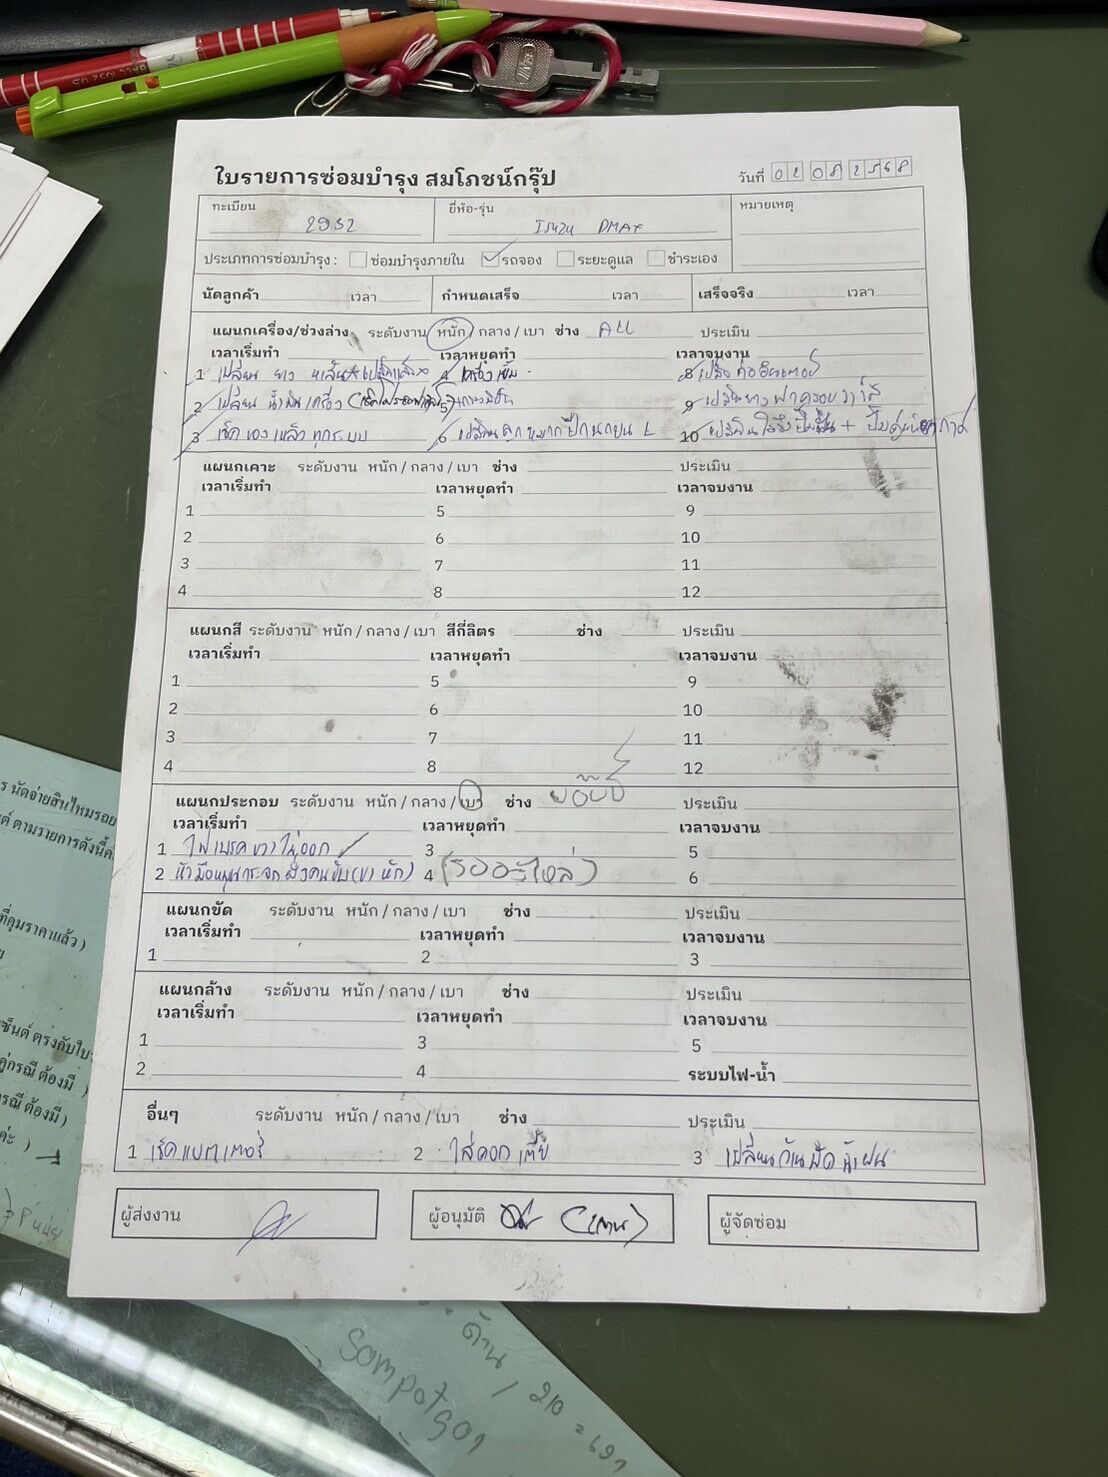 ใบรายการซ่อมบำรุง สมโภชน์กรุ๊ป
วันที่ 02 08 2568
ทะเบียน 2952
ยี่ห้อ-รุ่น ISUZU DMAX
หมายเหตุ
ประเภทการซ่อมบำรุง : ซ่อมบำรุงภายใน รถจอง ระยะดูแล ชำระเอง
นัดลูกค้า เวลา กำหนดเสร็จ เวลา เสร็จจริง เวลา
แผนกเครื่อง/ช่วงล่าง ระดับงาน หนัก / กลาง / เบา ช่าง ALL ประเมิน
เวลาเริ่มทำ เวลาหยุดทำ เวลาจบงาน
1 เปลี่ยน ยาง 4 8 เปลี่ยน ท่อ
2 เปลี่ยน น้ำมันเครื่อง 5 9 เปลี่ยนยางฝาครอบวาล์ว
3 เช็ค ของเหลว ทุกระบบ 6 เปลี่ยน ลูกหมากปีกนกบน L 10
แผนกเคาะ ระดับงาน หนัก / กลาง / เบา ช่าง ประเมิน
เวลาเริ่มทำ เวลาหยุดทำ เวลาจบงาน
1 5 9
2 6 10
3 7 11
4 8 12
แผนกสี ระดับงาน หนัก / กลาง / เบา สีกี่ลิตร ช่าง ประเมิน
เวลาเริ่มทำ เวลาหยุดทำ เวลาจบงาน
1 5 9
2 6 10
3 7 11
4 8 12
แผนกประกอบ ระดับงาน หนัก / กลาง / เบา ช่าง ประเมิน
เวลาเริ่มทำ เวลาหยุดทำ เวลาจบงาน
1 ไฟเบรคขวาไม่ออก 3 5
2 หัวมือหมุนกระจกฝั่งคนขับ(ขาหัก) 4 (รออะไหล่) 6
แผนกขัด ระดับงาน หนัก / กลาง / เบา ช่าง ประเมิน
เวลาเริ่มทำ เวลาหยุดทำ เวลาจบงาน
1 2 3
แผนกล้าง ระดับงาน หนัก / กลาง / เบา ช่าง ประเมิน
เวลาเริ่มทำ เวลาหยุดทำ เวลาจบงาน
1 3 5
2 4 ระบบไฟ-น้ำ
อื่นๆ ระดับงาน หนัก / กลาง / เบา ช่าง ประเมิน
1 เช็คแบตเตอรี่ 2 ใส่ดอกเตี้ย 3 เปลี่ยนก้านปัดน้ำฝน
ผู้ส่งงาน ผู้อนุมัติ ผู้จัดซ่อม
นัดจ่ายสินไหมรถย
ต์ ตามรายการดังนี้ค่
ที่คุมราคาแล้ว )
ซ็นต์ ตรงกับใบ
คู่กรณี ต้องมี )
รณี ต้องมี )
ด้าน / 210
Sompotgo1